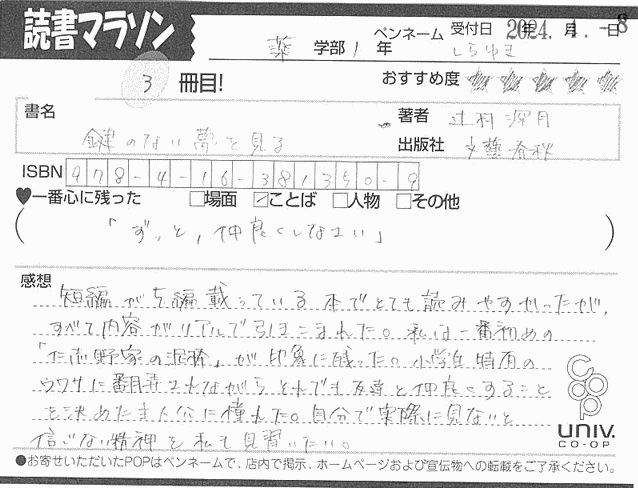 読書マラソン
薬 学部 1 年
ペンネーム しらゆき
受付日 2024. 4. -8
年 月 日
3 冊目!
おすすめ度 ★★★★★
書名 鍵のない夢を見る
著者 辻村深月
出版社 文藝春秋
ISBN 978-4-16-381350-9
♥一番心に残った □場面 ☑ことば □人物 □その他
(「ずっと、仲良くしなさい」)
感想
短編が5編載っている本でとても読みやすかったが、
すべて内容がリアルで引きこまれた。私は一番初めの
「仁志野家の泥棒」が印象に残った。小学生特有の
ウワサに翻弄されながらそれでも友達と仲良くすること
を決めた主人公に憧れた。自分で実際に見ないと
信じない精神を私も見習いたい。
CO-OP
UNIV.
CO-OP
●お寄せいただいたPOPはペンネームで、店内で掲示、ホームページおよび宣伝物への転載をご了承ください。